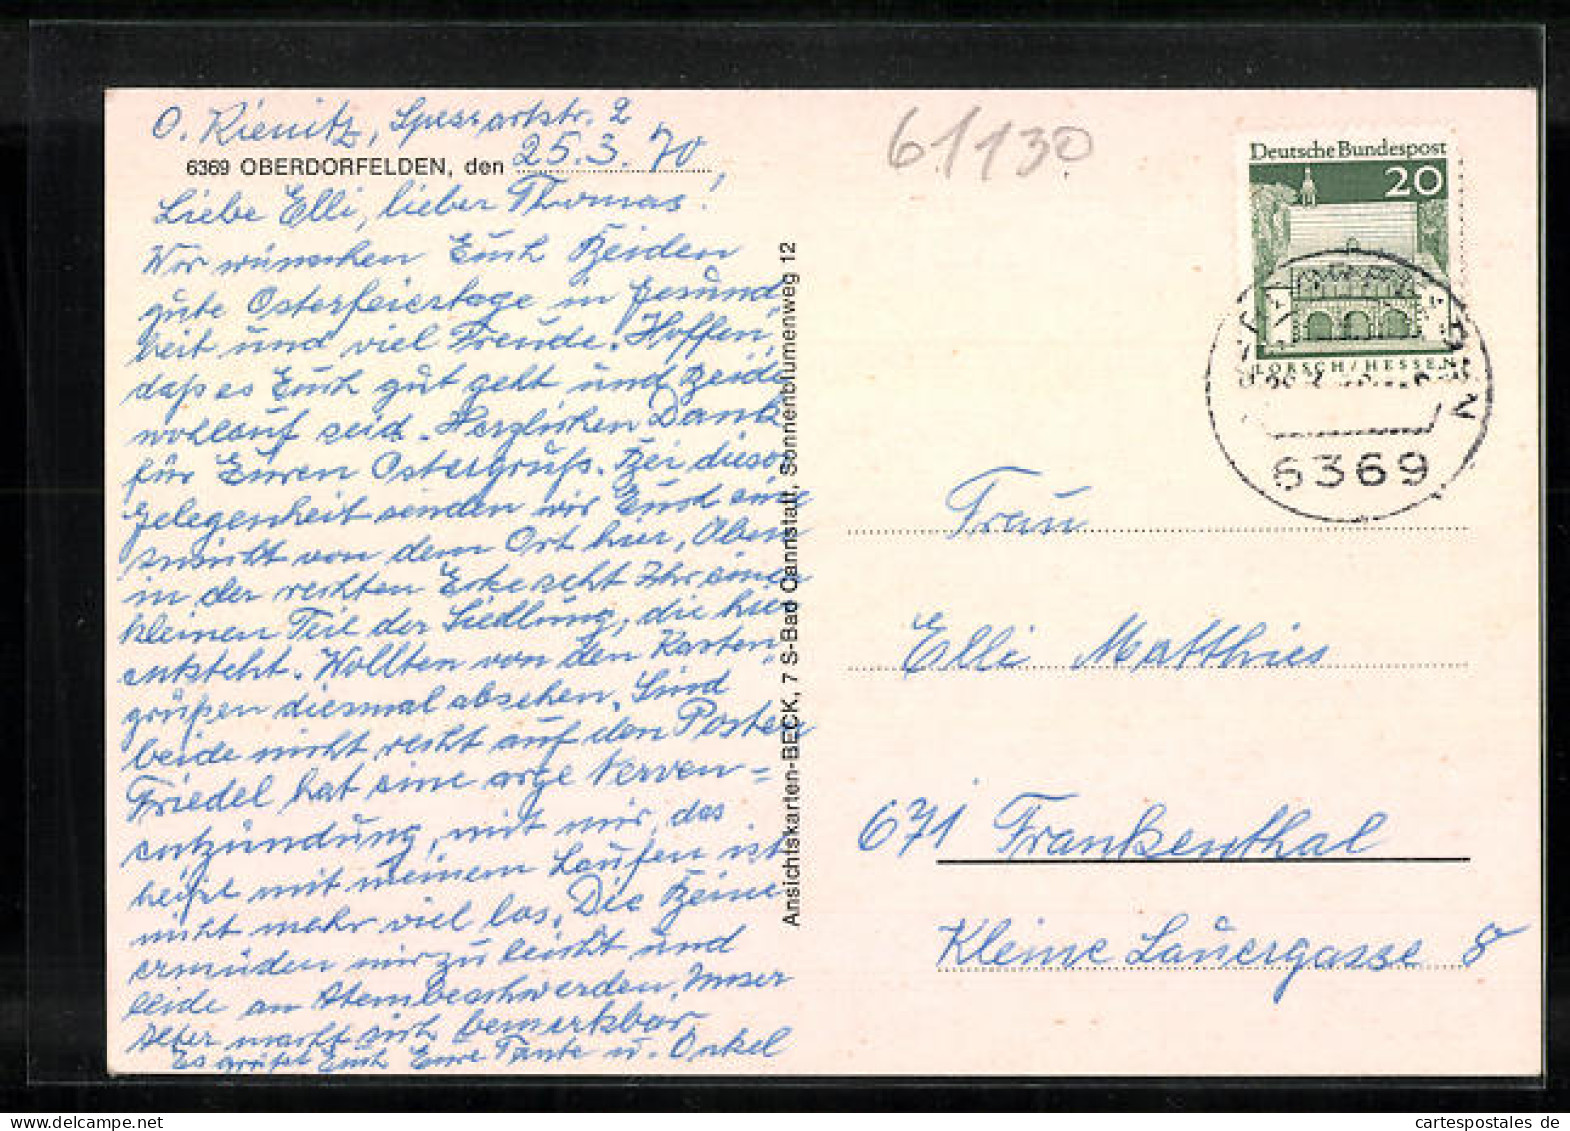 O. Kienitz, Spessartstr. 2
6369 OBERDORFELDEN, den 25.3.70
Liebe Elli, lieber Thomas!
Wir wünschen Euch Beiden
gute Osterfeiertage in Gesund
heit und viel Freude. Hoffen,
daß es Euch gut geht und Beide
wohlauf seid. Herzlichen Dank
für Euren Ostergruß. Bei dieser
Gelegenheit senden wir Euch eine
Ansicht von dem Ort hier, Oben
in der rechten Ecke seht Ihr einen
kleinen Teil der Siedlung, die hier
entsteht. Wollten von den Karten
grüßen diesmal absehen. Sind
beide nicht recht auf den Posten
Friedel hat eine arge Nerven=
entzündung, mit mir, das
heißt mit meinem Laufen ist
nicht mehr viel los. Die Beine
ermüden mir zu leicht und
leide an Atembeschwerden. Unser
Alter macht sich bemerkbar
Es grüßt Euch Eure Tante u. Onkel
Ansichtskarten-BECK, 7 S-Bad Cannstatt, Sonnenblumenweg 12
61130
Deutsche Bundespost
20
LORSCH/HESSEN
6369
Frau
Elli Matthies
671 Frankenthal
Kleine Lauergasse 8
cartespostales de